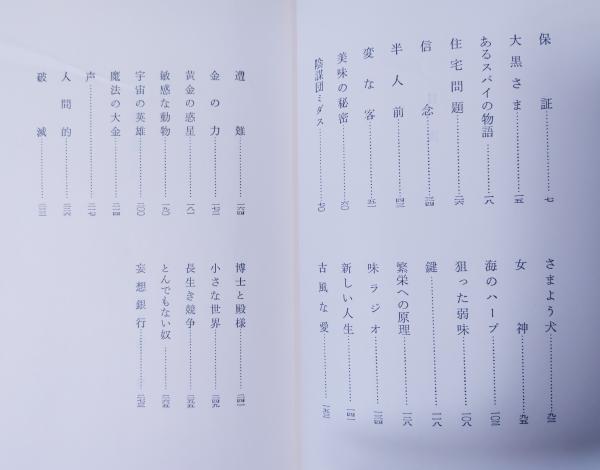 保証……七
大黒さま……一五
あるスパイの物語……一八
住宅問題……二六
信念……三四
半人前……四二
変な客……五一
美味の秘密……六〇
陰謀団ミダス……七〇
さまよう犬……九三
女神……九五
海のハープ……一〇三
狙った弱味……一〇八
鍵……一一八
繁栄への原理……一二八
味ラジオ……一三四
新しい人生……一四一
古風な愛……一五三
遭難……一六四
金の力……一七二
黄金の惑星……一八一
敏感な動物……一九〇
宇宙の英雄……二〇〇
魔法の大金……二一四
声……二一七
人間的……二二六
破滅……二三三
博士と殿様……二四一
小さな世界……二四九
長生き競争……二五五
とんでもない奴……二六五
妄想銀行……二七三